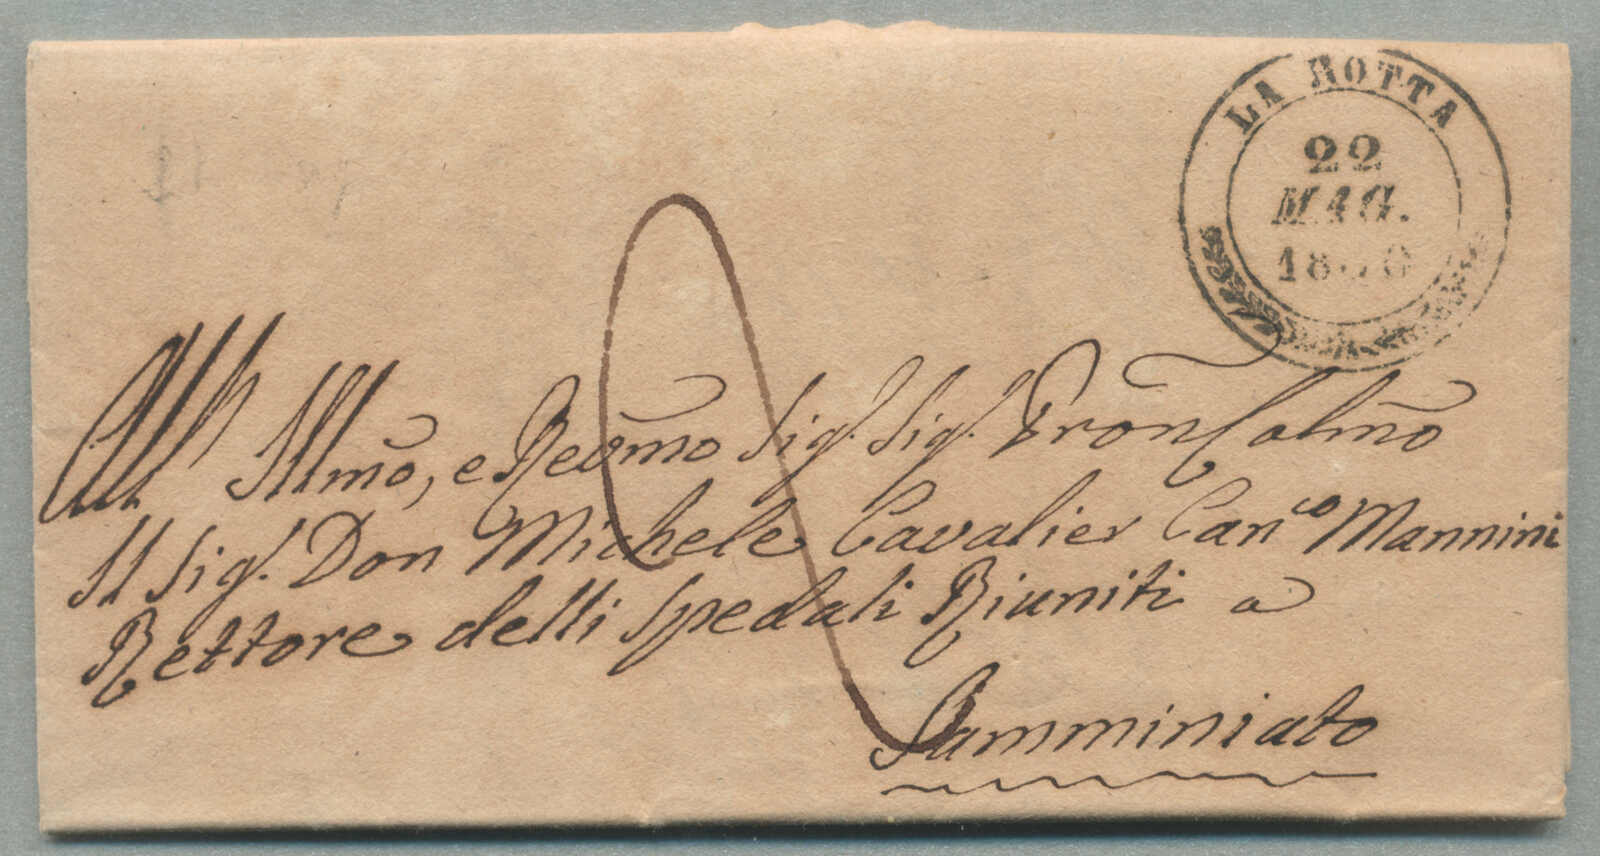 LA ROTTA
22
MAG.
18
All' Illmo, e Revmo Sig. Sig. Pron Colmo
Il Sig. Don Michele Cavalier Canco Mannini
Rettore delli Spedali Riuniti a
Samminiato
2